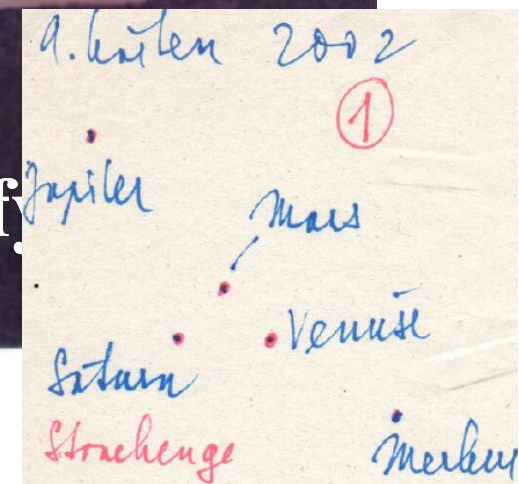 9. květen 2002
1
Jupiter
Mars
Venuše
Saturn
Stonehenge
Merkur